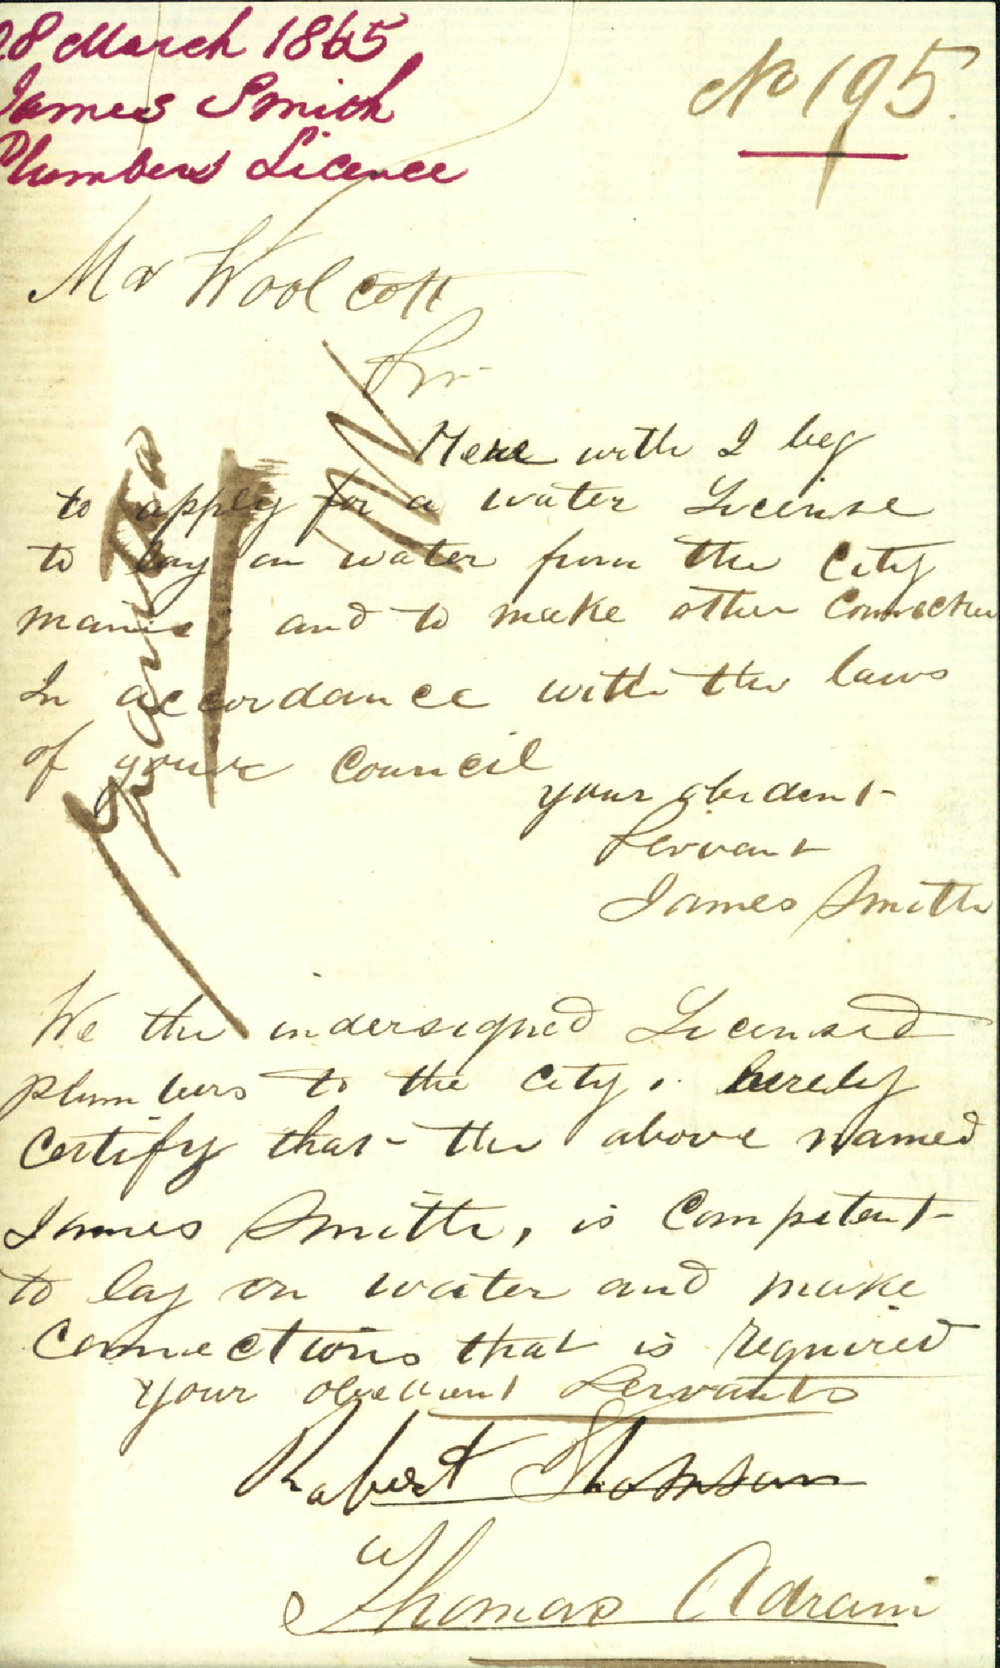 28 March 1865
James Smith
Plumbers Licence
No 195.
Mr Woolcott
Sir
Here with I beg
to apply for a water License
to lay on water from the City
mains, and to make other connection
In accordance with the laws
of your council
your obedent
Servant
James Smith
Granted
We the undersigned Licensed
plumbers to the city. hereby
Certify that the above named
James Smith, is Competent
to lay on water and make
Connections that is required
your obedient Servants
Robert Thomson
Thomas Adram